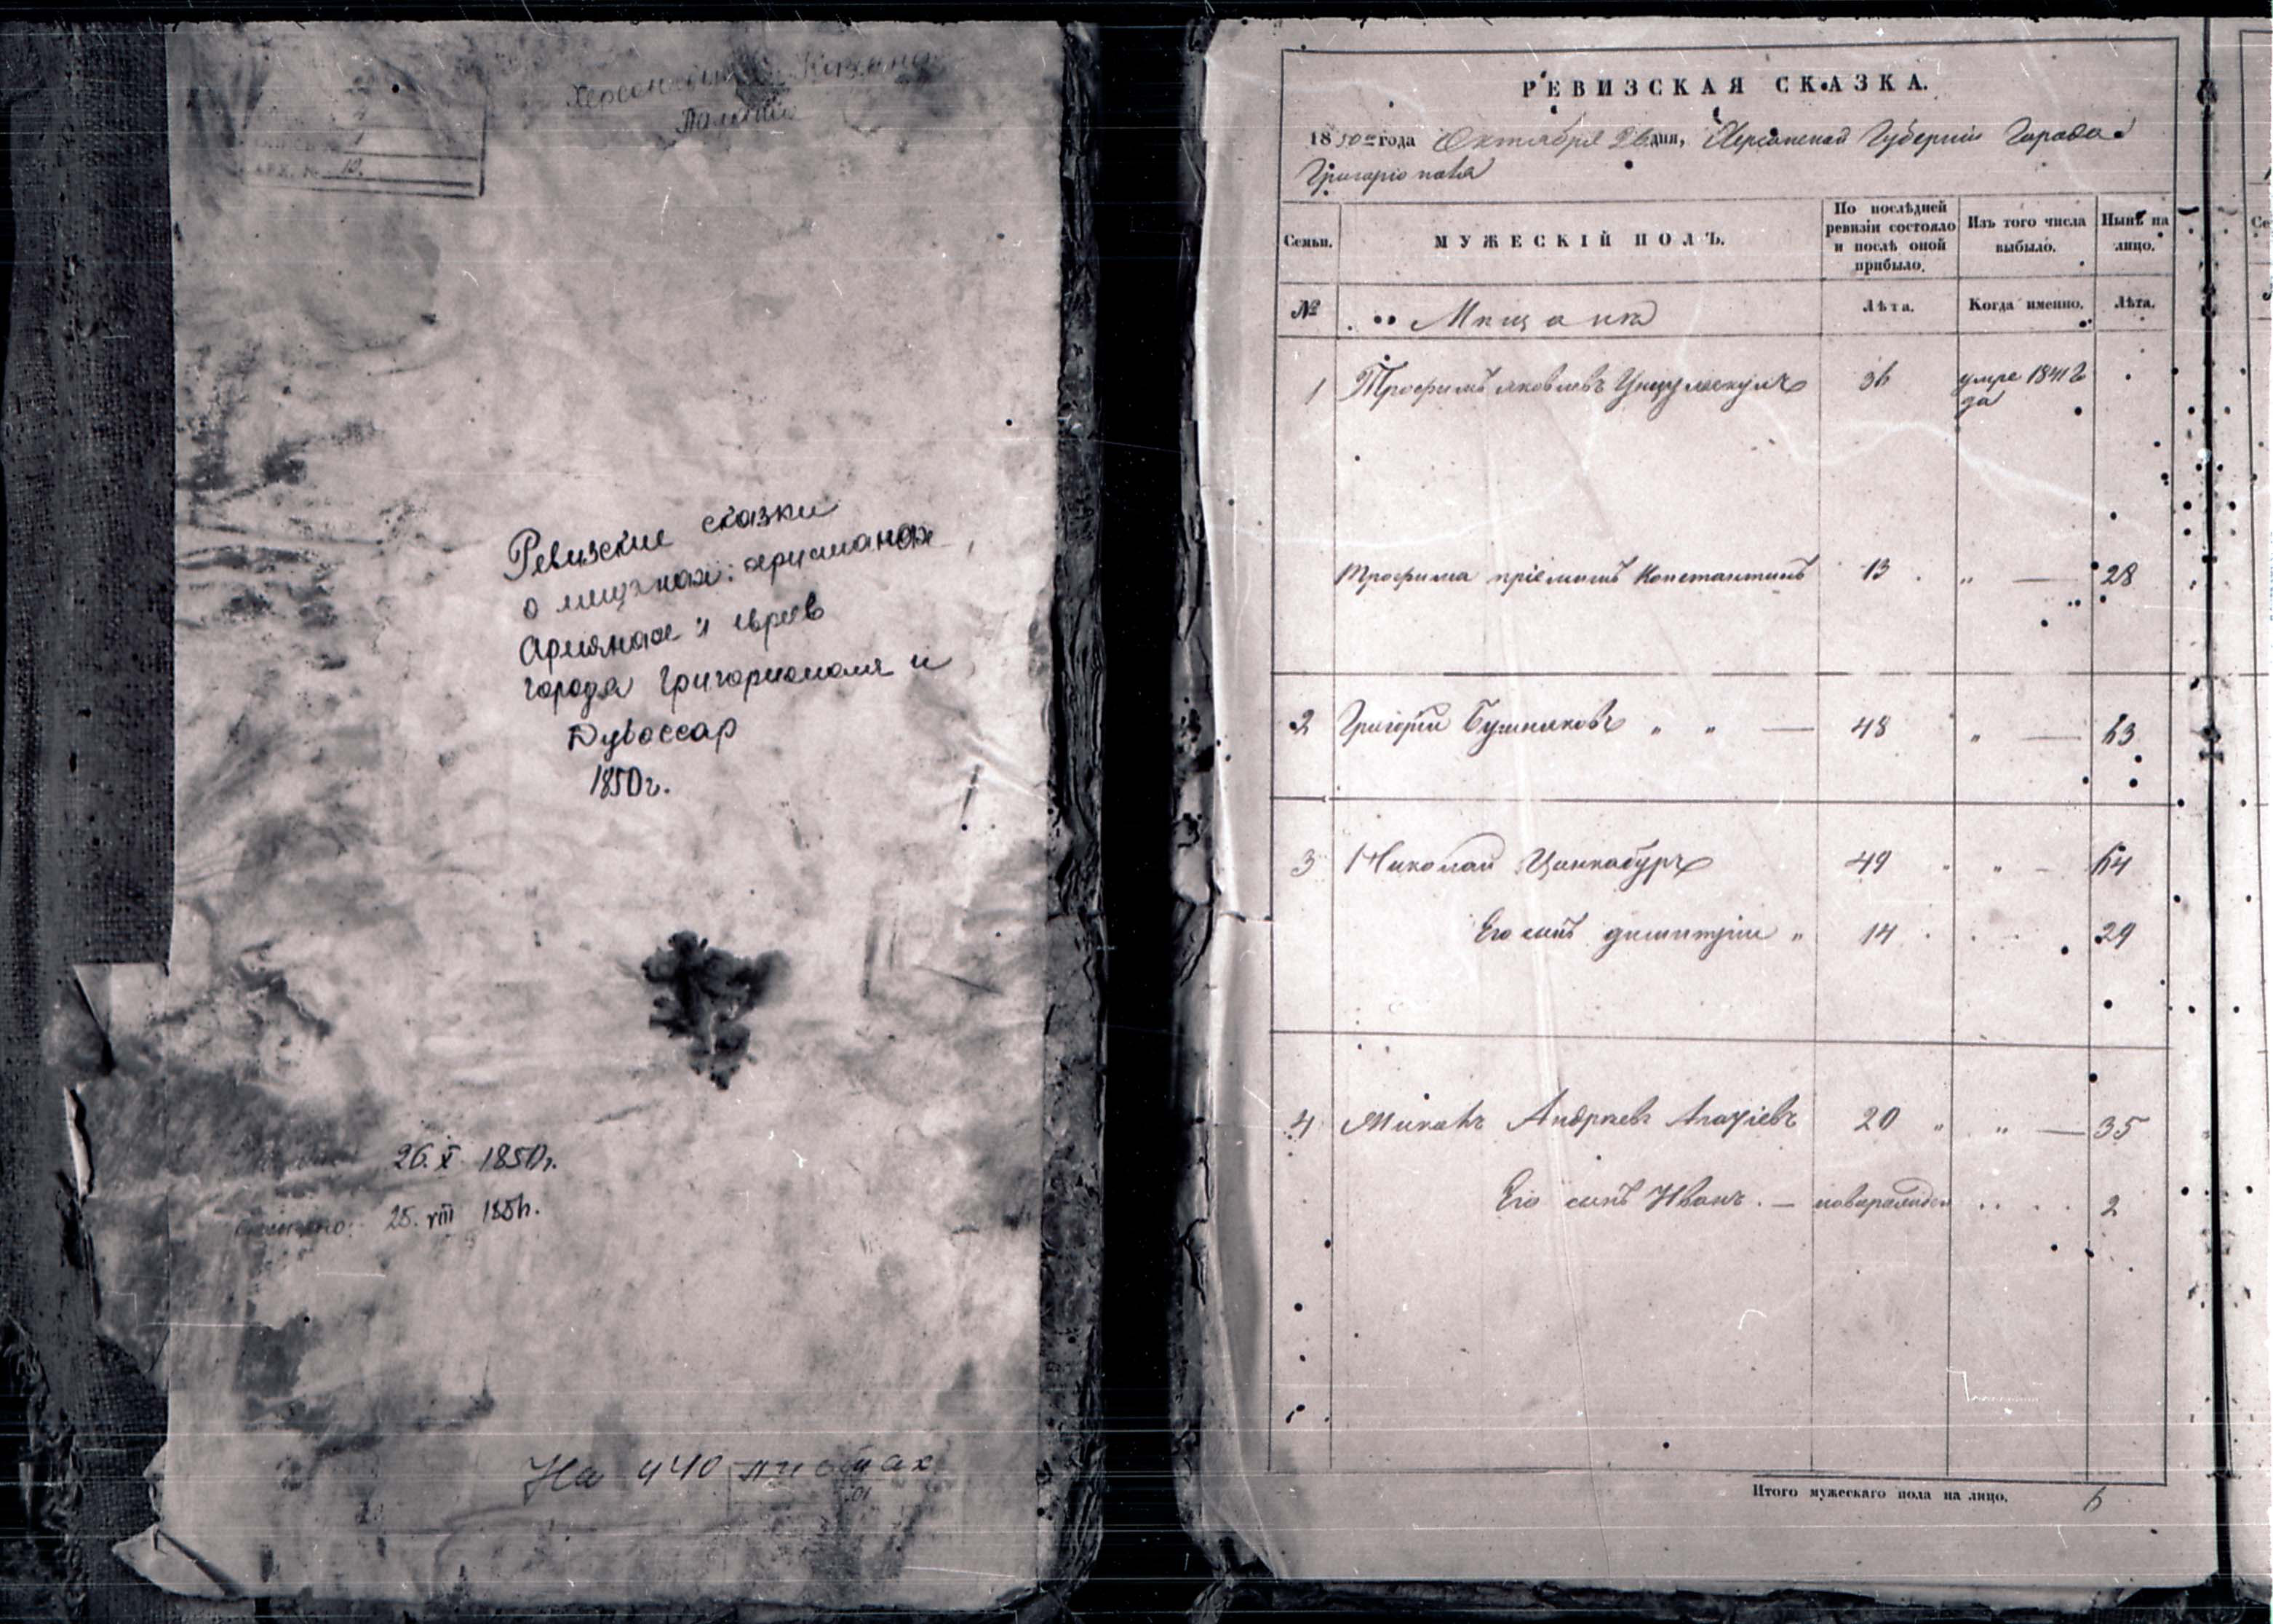 Херсонская Казенная
Палата
12.
Ревизские сказки
о мещанах: христианах,
Армянах и евреев
города Григориополя и
Дубоссар
1850г.
26.X 1850г.
25.VIII 185h.
На 440 листах
РЕВИЗСКАЯ СКАЗКА.
1850го года Октября 26 дня, Херсонской Губернии Города
Григоріополя
Семьи.
МУЖЕСКІЙ ПОЛЪ.
По послѣдней ревизіи состояло и послѣ оной прибыло.
Изъ того числа выбыло.
Нынѣ на лицо.
№
Мѣщане
Лѣта.
Когда именно.
Лѣта.
1 Трофимъ яковлевъ 36 умре 1841 го
да
Трофима пріемышъ Константинъ 13 . „ — 28
2 Григорій Бушняковъ „ „ — 48 „ — 63
3 Николай Цинкабуръ 49 „ „ - 64
Его сынъ димитрій „ 14 29
4 Андреевъ 20 „ „ — 35
Его сынъ Иванъ . — новорожден 2
Итого мужескаго пола на лицо. 5